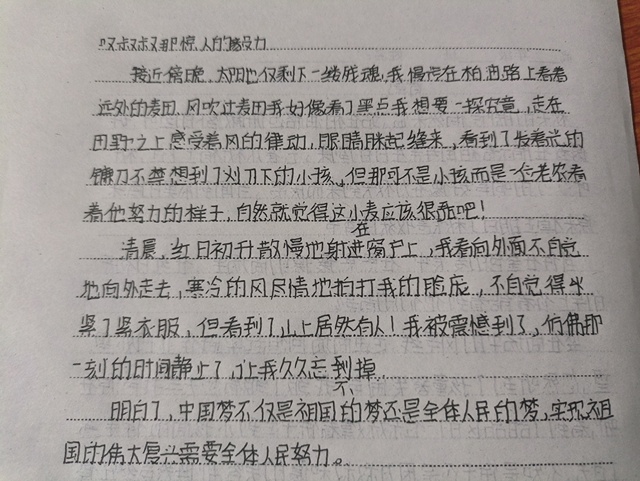 叹叹叹那惊人的毅力
接近傍晚,太阳也仅剩下一缕残魂,我愣愣在柏油路上看着
远外的麦田、风吹过麦田我好像看了黑点我想要一探究竟,走在
田野之上感受着风的律动,眼睛眯起缝来,看到了发着光的
镰刀不禁想到了刈刀下的小孩,但那可不是小孩而是一位老农看
着他努力的样子,自然就觉得这小麦应该很甜吧!
清晨,红日初升散慢地射进在窗户上,我看向外面不自觉
地向外走去,寒冷的风尽情地拍打我的脸庞,不自觉得
紧了紧衣服,但看到了山上居然有人!我被震憾到了,仿佛那
一刻的时间静止了,让我久久忘不到掉.
明白了,中国梦不仅是祖国的梦还是全体人民的梦,实现祖
国的伟大复兴需要全体人民努力。